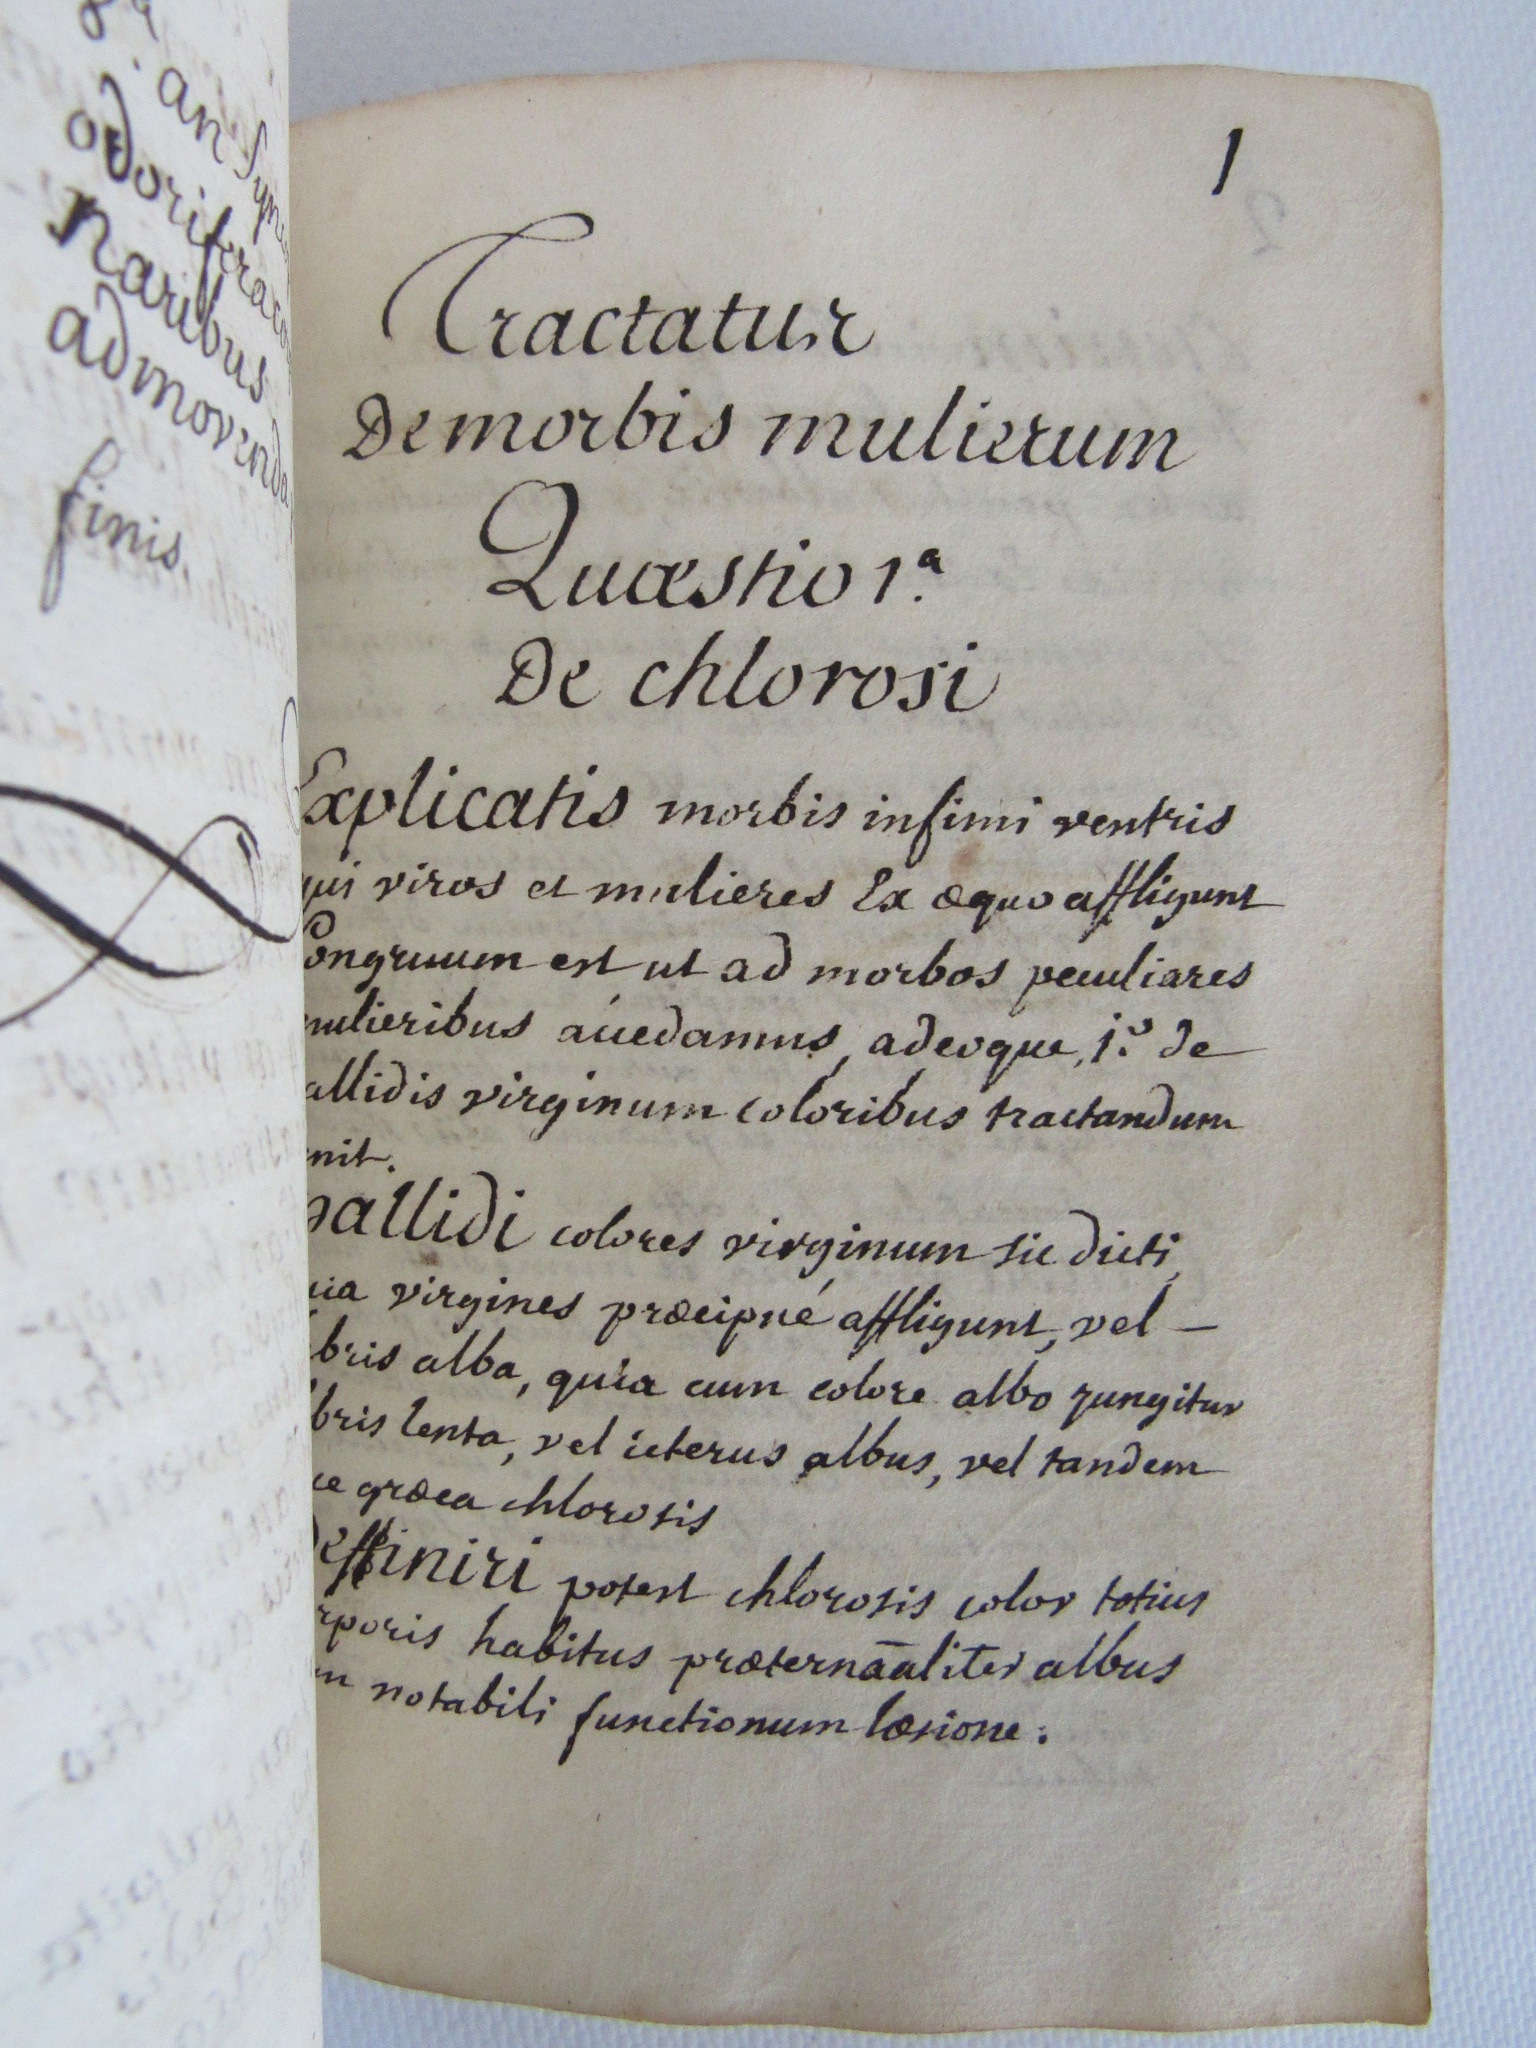 an
odorifera
naribus
admovenda
finis.
1
Tractatus
De morbis mulierum
Quæstio 1.a
De chlorosi
Explicatis morbis infimi ventris
qui viros et mulieres Ex æquo affligunt
Congruum est ut ad morbos peculiares
mulieribus accedamus, adeoque, 1.o de
allidis virginum coloribus tractandum
nit.
pallidi colores virginum sic dicti,
uia virgines præcipué affligunt, vel –
bris alba, quia cum colore albo jungitur
bris lenta, vel icterus albus, vel tandem
ce græca chlorosis
Deffiniri potest chlorosis color totius
rporis habitus præternãaliter albus
m notabili functionum læsione.